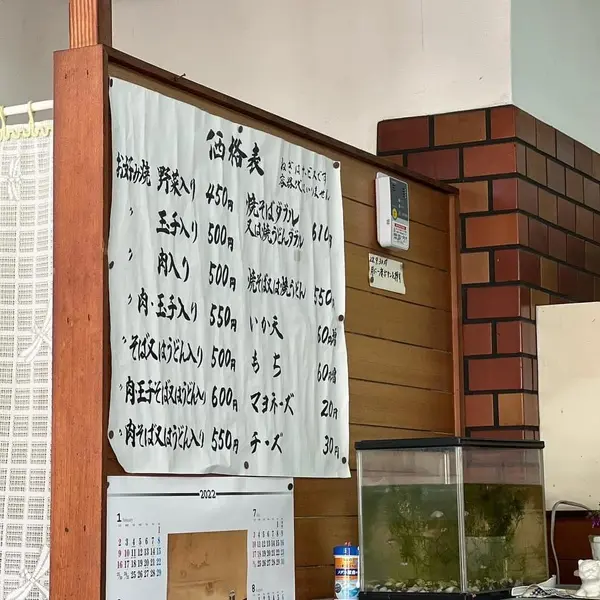 価格表
ねぎはサービスです
容器代はいりません
お好み焼 野菜入り 450円
〃 玉子入り 500円
〃 肉入り 500円
〃 肉・玉子入り 550円
〃 そば又はうどん入り 500円
〃 肉玉子そば又はうどん入り 600円
〃 肉そば又はうどん入り 550円
焼そばダブル
又は焼うどんダブル 610円
焼そば又は焼うどん 550円
いか天 60円増
もち 60円増
マヨネーズ 20円
チーズ 30円
2022
1
7
8